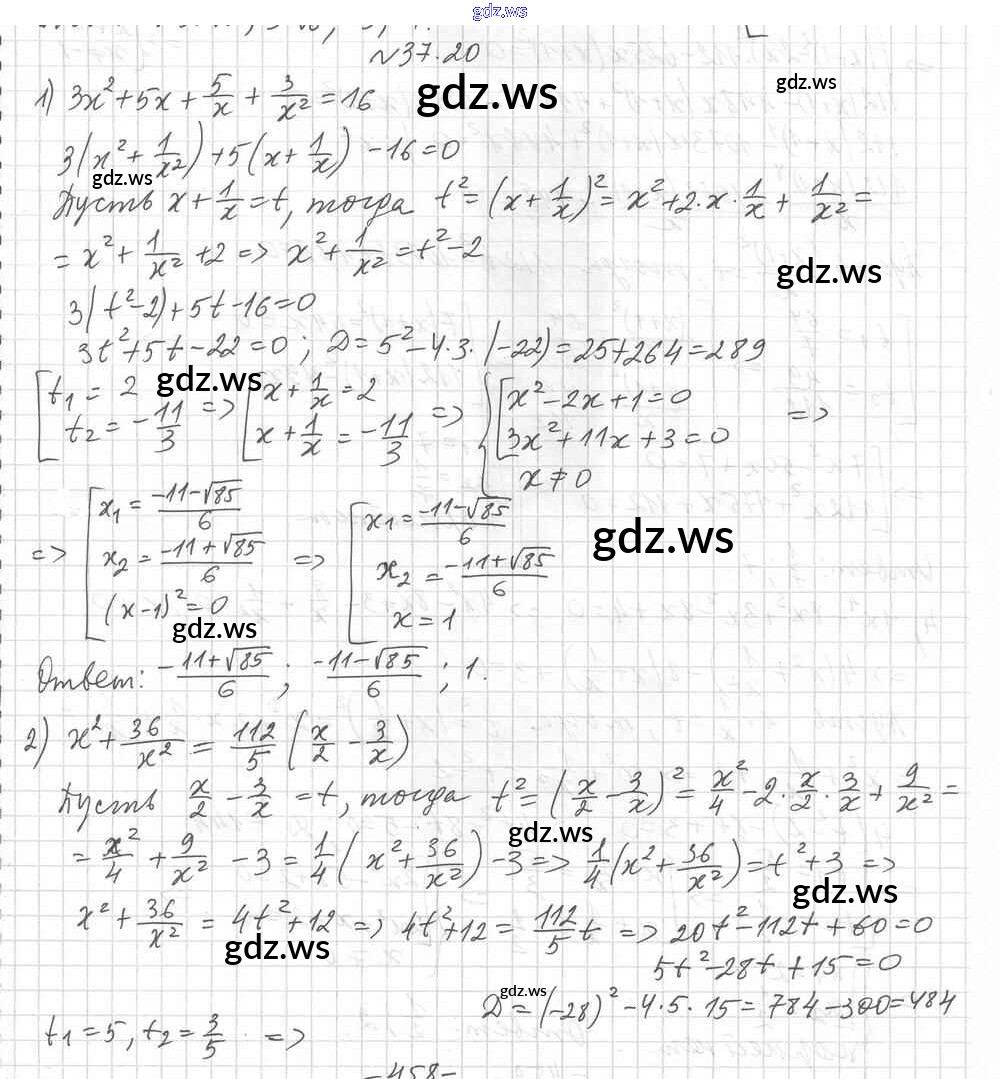 gdz.ws
№37.20
1) 3x² + 5x + 5/x + 3/x² = 16
gdz.ws
gdz.ws
3(x² + 1/x²) + 5(x + 1/x) - 16 = 0
gdz.ws
Пусть x + 1/x = t, тогда t² = (x + 1/x)² = x² + 2·x·1/x + 1/x² =
= x² + 1/x² + 2 => x² + 1/x² = t² - 2
gdz.ws
3(t² - 2) + 5t - 16 = 0
3t² + 5t - 22 = 0; D = 5² - 4·3·(-22) = 25 + 264 = 289
gdz.ws
[t₁ = 2, t₂ = -11/3 => [x + 1/x = 2, x + 1/x = -11/3 => {[x² - 2x + 1 = 0, 3x² + 11x + 3 = 0, x ≠ 0 =>
=> [x₁ = (-11 - √85)/6, x₂ = (-11 + √85)/6, (x - 1)² = 0 => [x₁ = (-11 - √85)/6, x₂ = (-11 + √85)/6, x = 1
gdz.ws
gdz.ws
Ответ: (-11 + √85)/6; (-11 - √85)/6; 1.
2) x² + 36/x² = 112/5 (x/2 - 3/x)
Пусть x/2 - 3/x = t, тогда t² = (x/2 - 3/x)² = x²/4 - 2·x/2·3/x + 9/x² =
gdz.ws
= x²/4 + 9/x² - 3 = 1/4 (x² + 36/x²) - 3 => 1/4 (x² + 36/x²) = t² + 3 =>
gdz.ws
x² + 36/x² = 4t² + 12 => 4t² + 12 = 112/5 t => 20t² - 112t + 60 = 0
gdz.ws
5t² - 28t + 15 = 0
gdz.ws
D = (-28)² - 4·5·15 = 784 - 300 = 484
t₁ = 5, t₂ = 3/5 =>
-458-